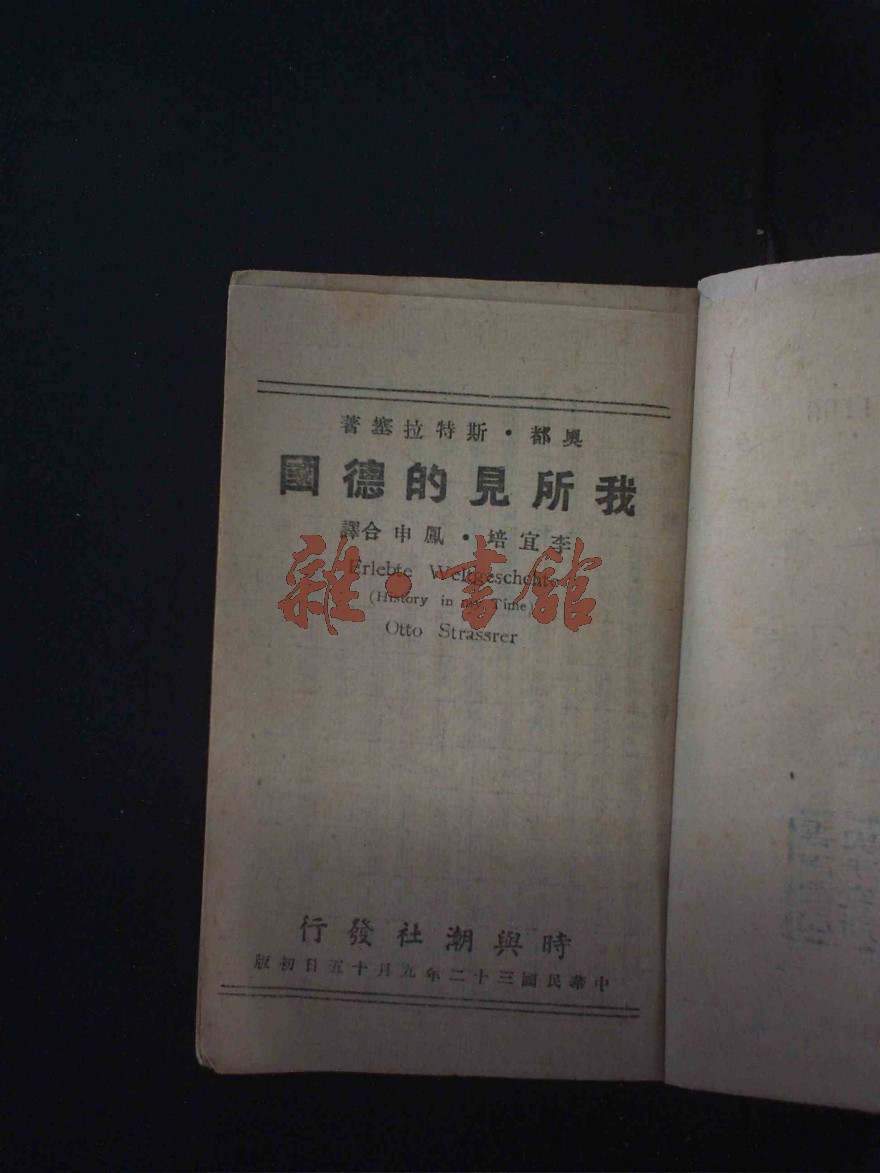 奧都・斯特拉塞著
我所見的德國
李宜培・鳳申合譯
Erlebte Weltgeschehte
(History in my Time)
Otto Strassrer
雜・書館
時與潮社發行
中華民國三十二年九月十五日初版